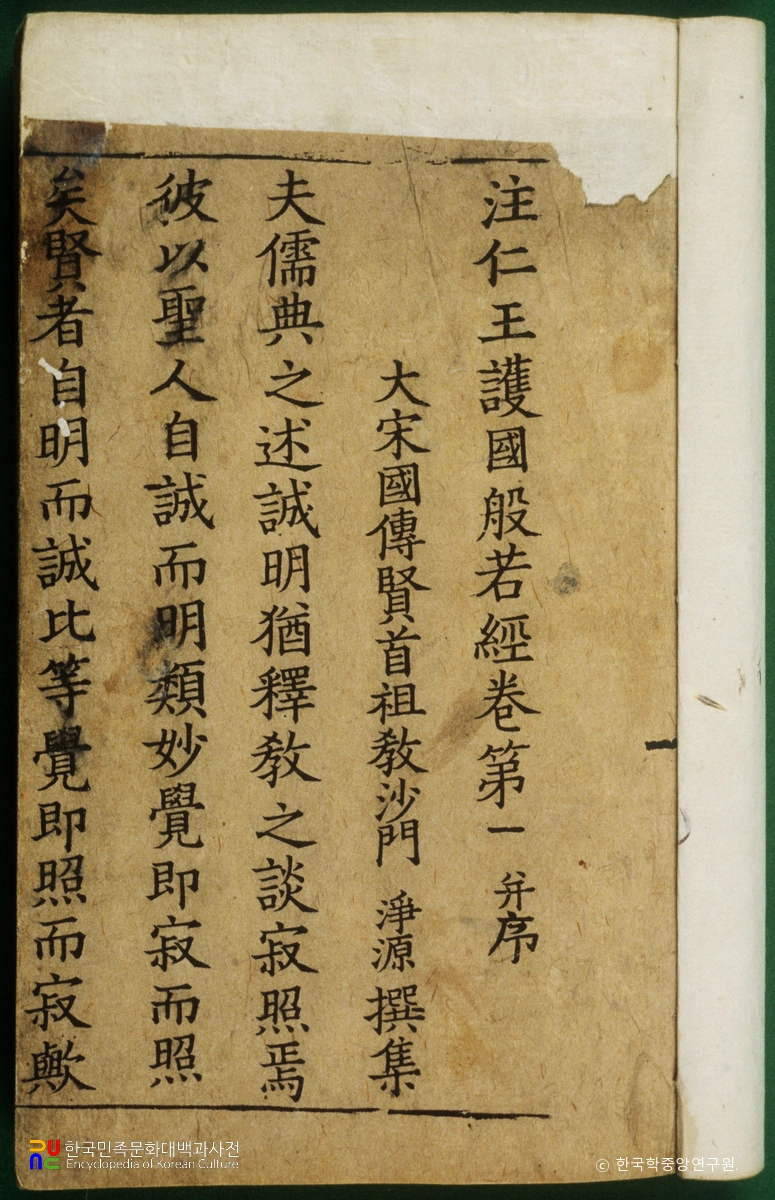 注仁王護國般若經卷第一 并序
大宋國傳賢首祖敎沙門 淨源 撰集
夫儒典之述誠明猶釋敎之談寂照焉
彼以聖人自誠而明類妙覺即寂而照
矣賢者自明而誠比等覺即照而寂歟
한국민족문화대백과사전
Encyclopedia of Korean Culture
© 한국학중앙연구원.